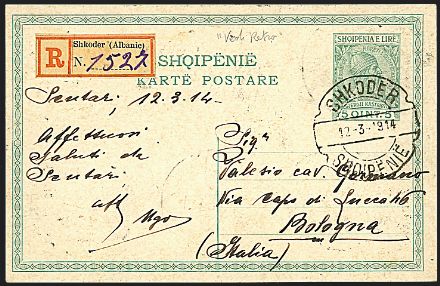 R
Shkoder (Albanie)
N. 1527
"Vedi Retro"
SHQIPËNIË
KARTË POSTARE
SHQIPENIA E LIRE
5 QINT. 5
SHKODER
12-3-1914
SHQIPENIE
Scutari, 12.3.14.
Affettuosi
Saluti da
Scutari
aff
Ugo
Sigr
Valerio cav. Germano
Via Capo di Lucca
Bologna
(Italia)